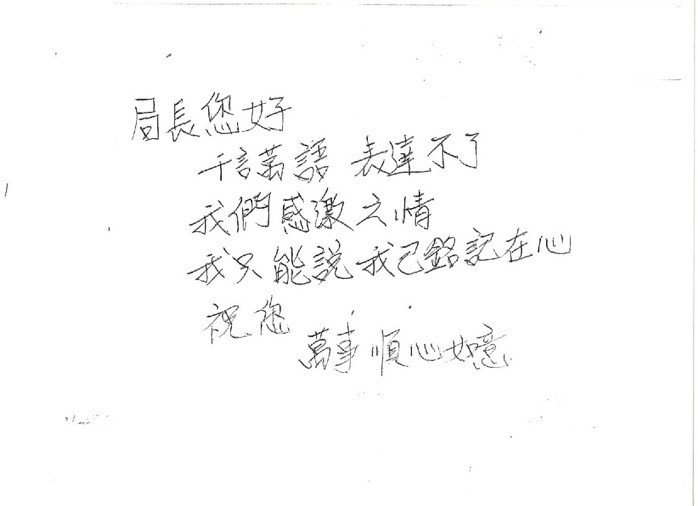 局長您好
千言萬語 表達不了
我們感激之情
我只能說我已銘記在心
祝您
萬事順心如意